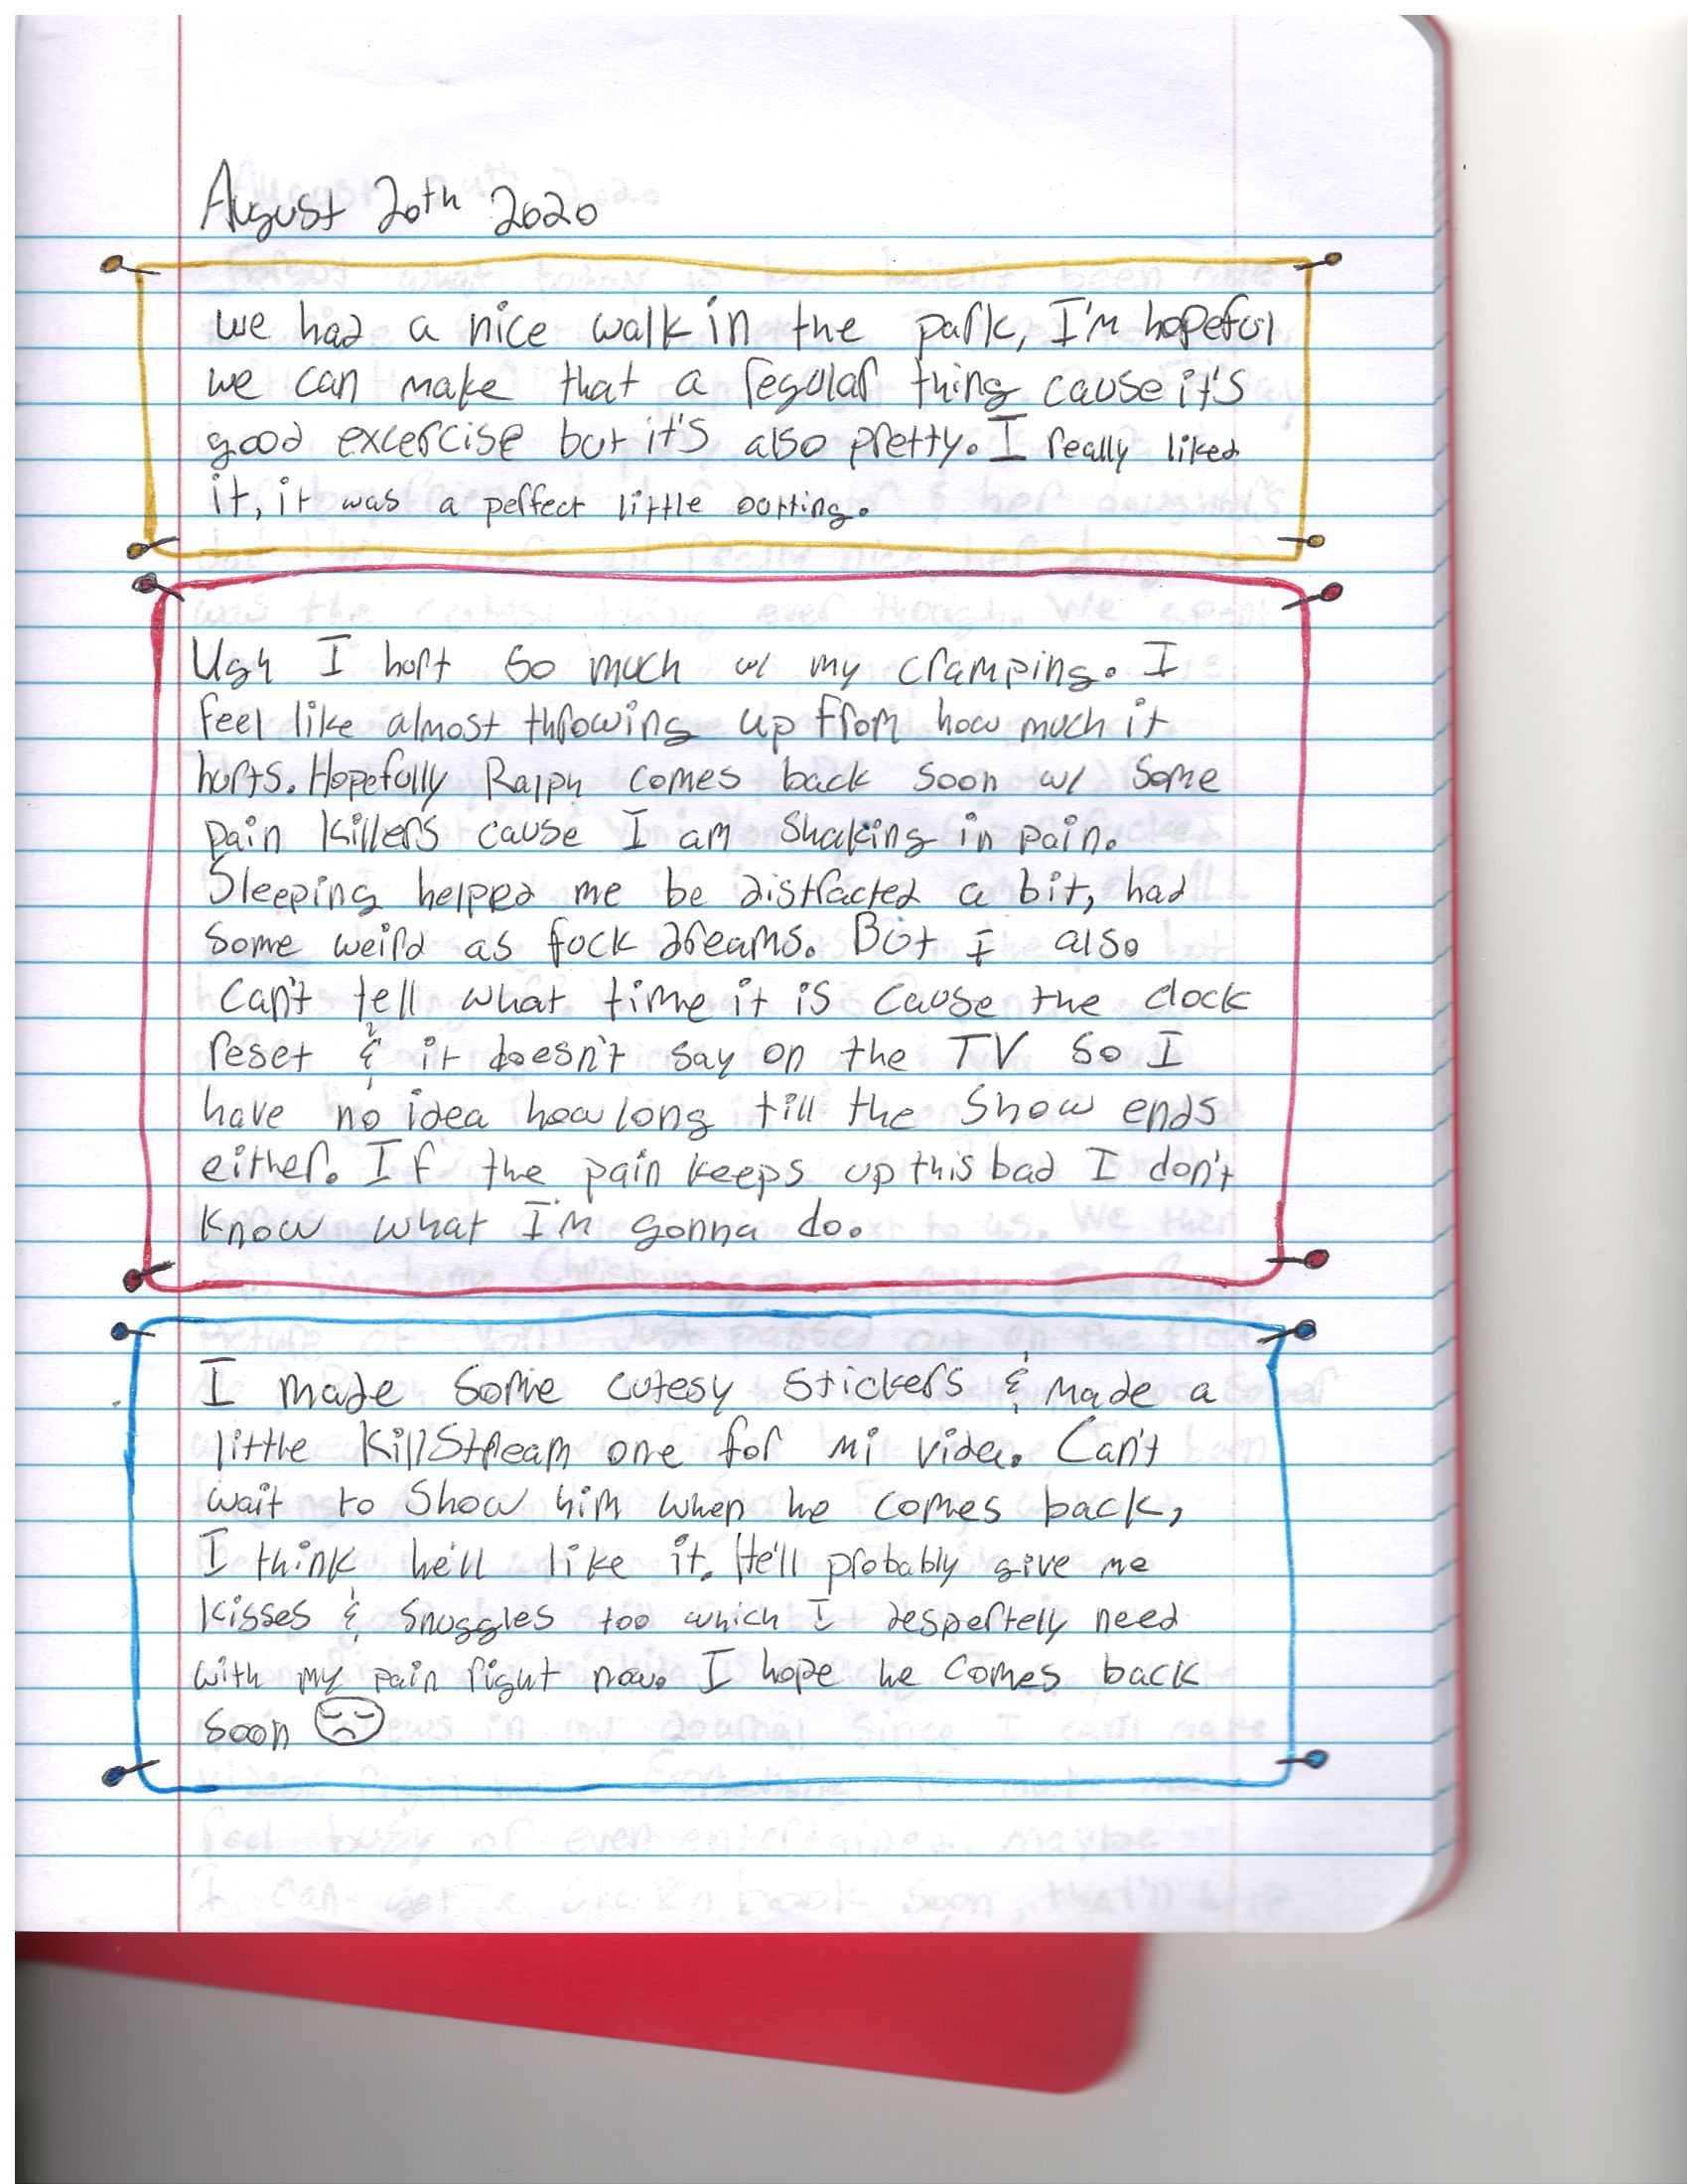 August 20th 2020
we had a nice walk in the park, I'm hopeful
we can make that a regular thing cause it's
good excercise but it's also pretty. I really liked
it, it was a perfect little outting.
Ugh I hurt so much w/ my cramping. I
feel like almost throwing up from how much it
hurts. Hopefully Ralph comes back soon w/ some
pain killers cause I am shaking in pain.
Sleeping helped me be distracted a bit, had
some weird as fuck dreams. But I also
can't tell what time it is cause the clock
reset & it doesn't say on the TV so I
have no idea how long till the show ends
either. If the pain keeps up this bad I don't
know what I'm gonna do.
I made some cutesy stickers & made a
little KillStream one for mi vida. Can't
wait to show him when he comes back,
I think he'll like it. He'll probably give me
kisses & snuggles too which I despertely need
with my pain right now. I hope he comes back
soon